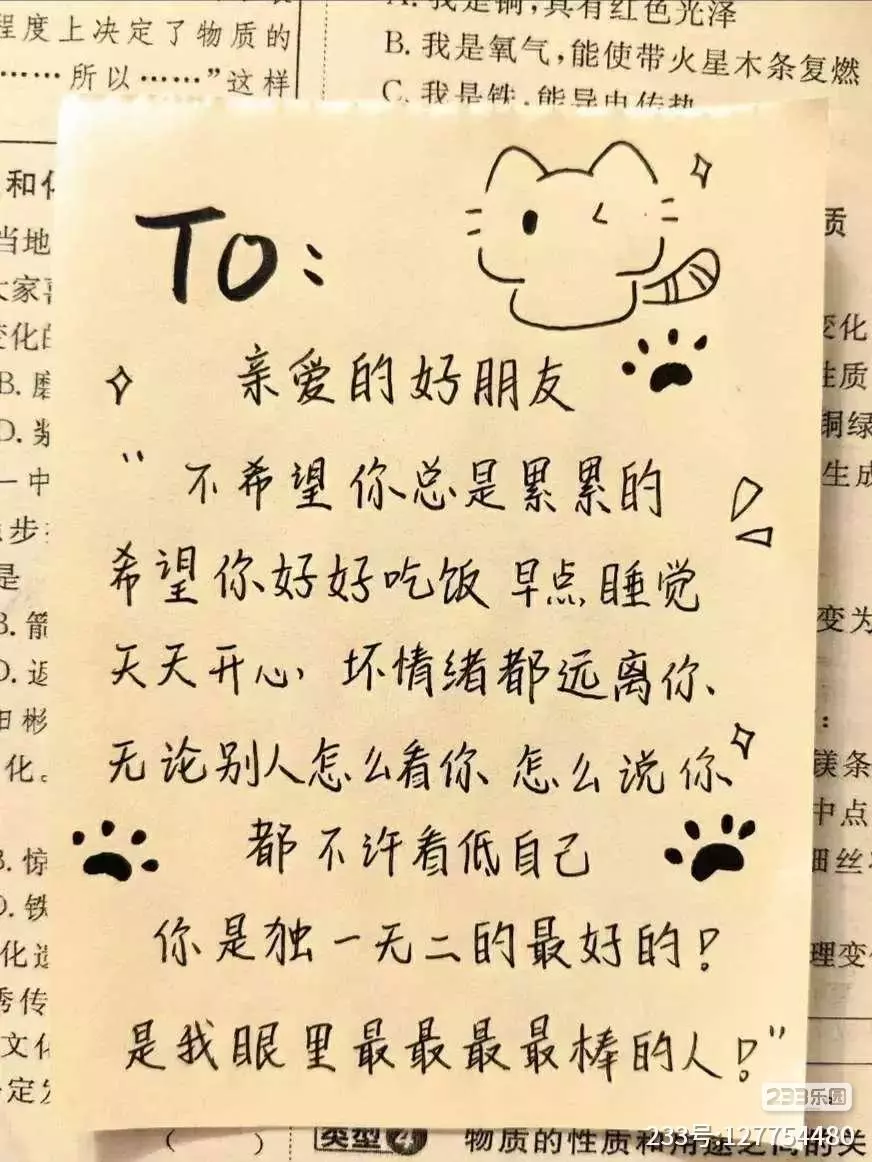 程度上决定了物质的
……所以……”这样
A.我是铜,具有红色光泽
B.我是氧气,能使带火星木条复燃
C.我是铁,能导电传热
和化
当地
大家
变化的
B.
D.
一中
步
是
B.箭
D.返
田彬
化。
B.惊
D.铁
化遗
秀传
文化
定发
质
变化
性质
铜绿
生成
变为
:
镁条
中点
细丝
理变化
To:
亲爱的好朋友
“不希望你总是累累的
希望你好好吃饭 早点睡觉
天天开心, 坏情绪都远离你、
无论别人怎么看你、怎么说你、
都不许看低自己
你是独一无二的最好的!
是我眼里最最最最棒的人!”
( )
类型4 物质的性质和用途之间的关
233乐园
233号:127754480